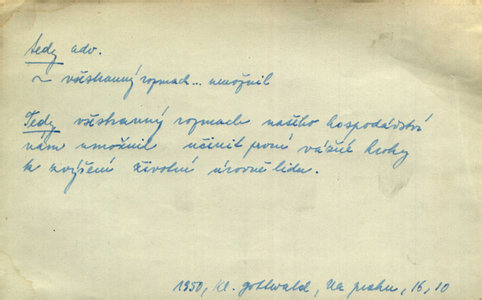 tedy adv.
~ všestranný rozmach... umožnil
Tedy všestranný rozmach našeho hospodářství
nám umožnil učinit první vážné kroky
k zvýšení životní úrovně lidu.
1950, Kl. Gottwald, Na prahu, 16, 10